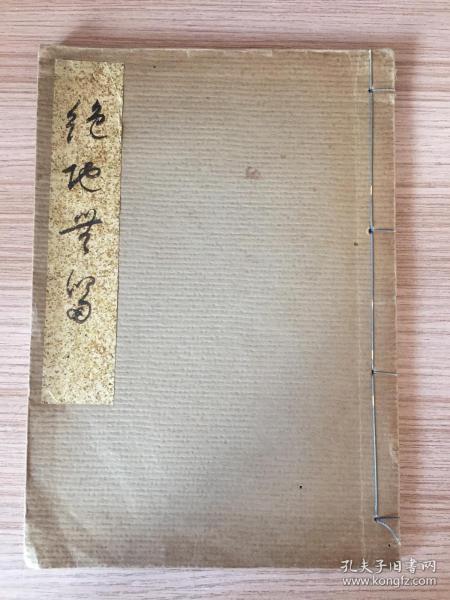 絶地無留
孔夫子旧书网
www.kongfz.com